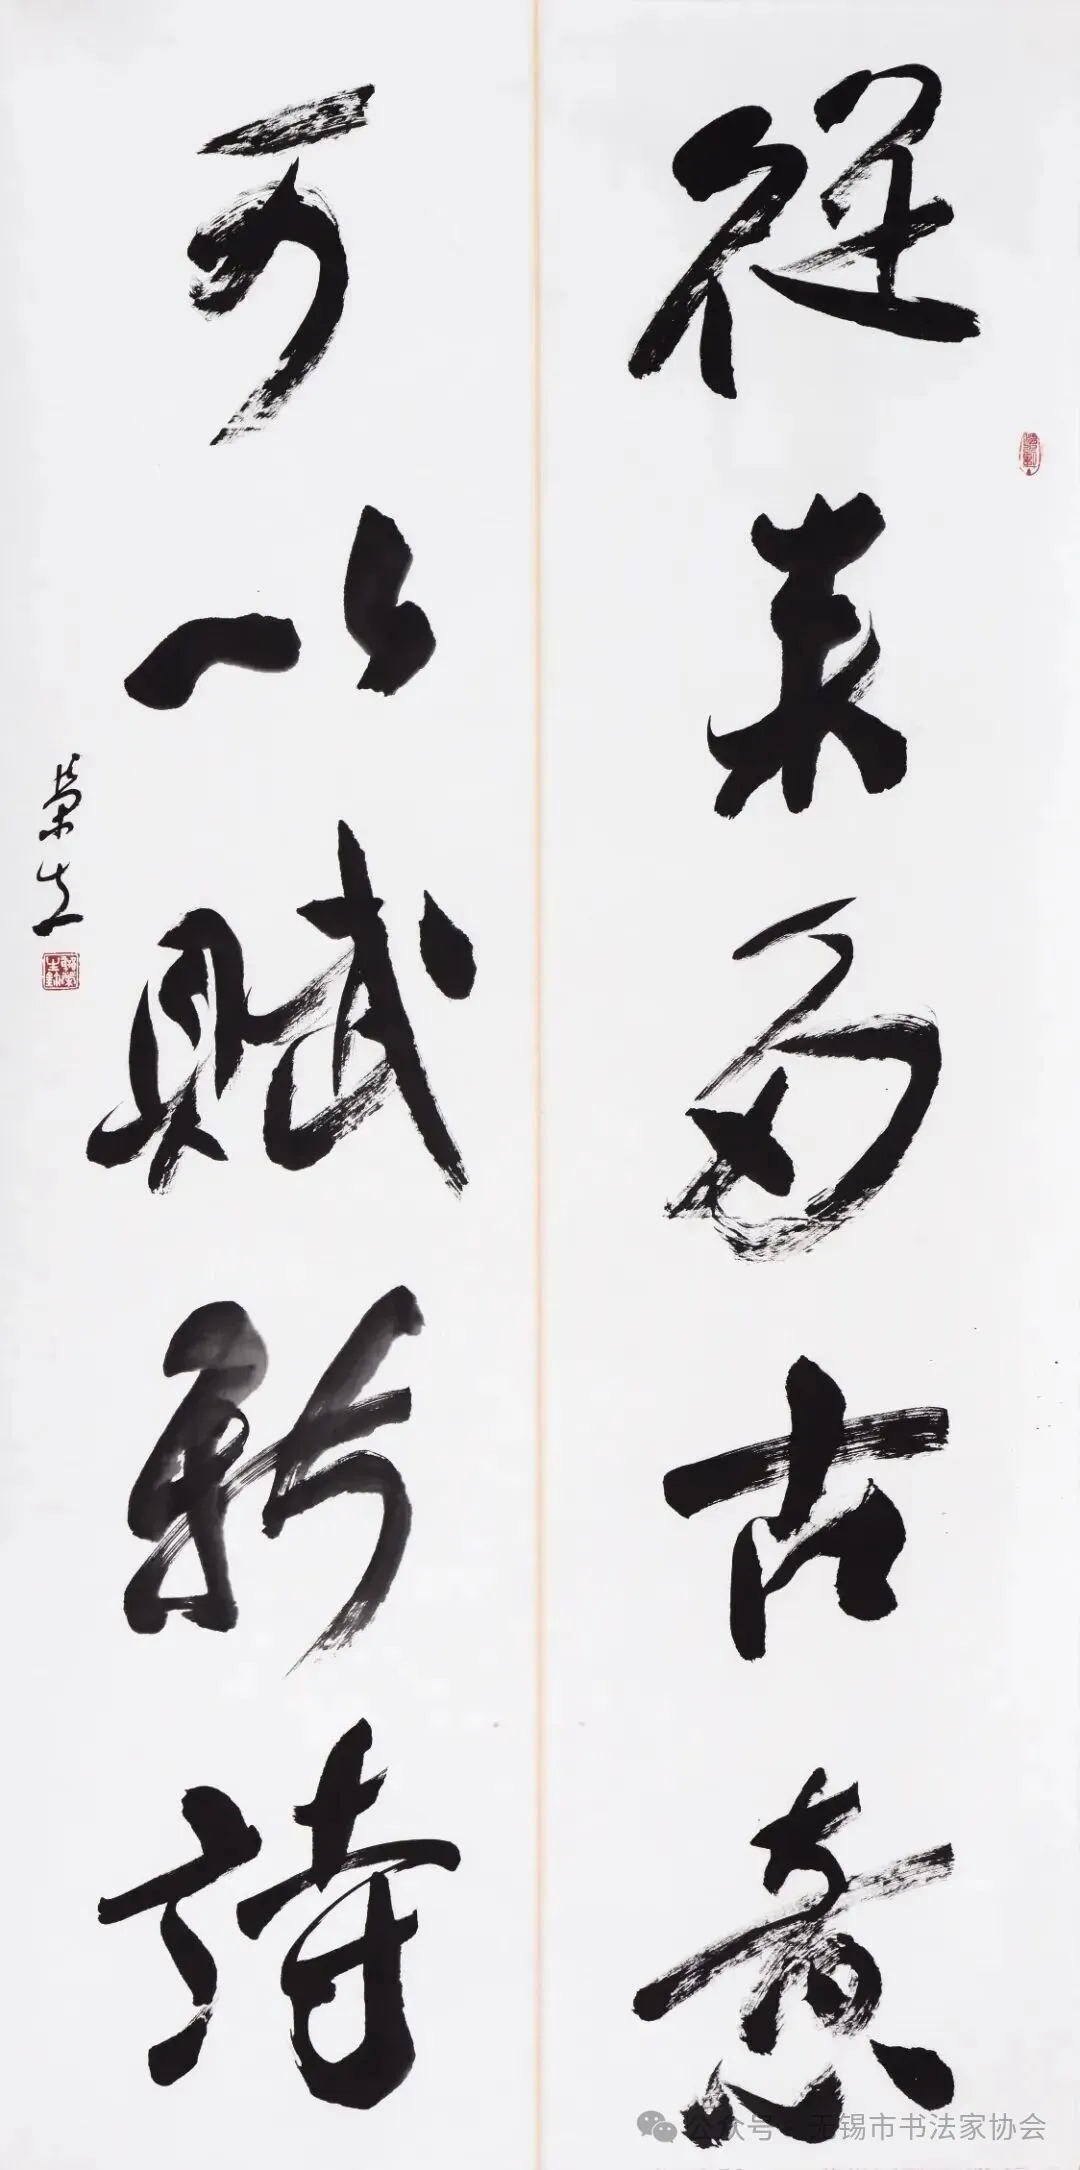 從来多古意
可以賦新詩
荣生
公众号·无锡市书法家协会